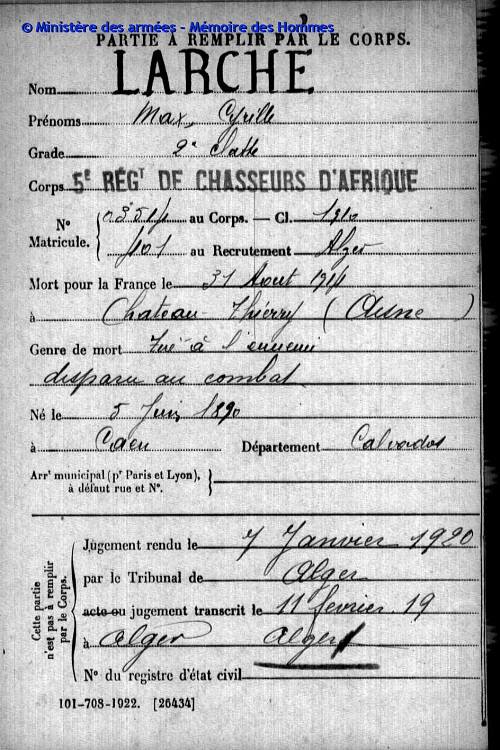 © Ministère des armées - Mémoire des Hommes
PARTIE À REMPLIR PAR LE CORPS.
Nom LARCHÉ
Prénoms Max, Cyrille
Grade 2e Classe
Corps 5E RÉGT DE CHASSEURS D'AFRIQUE
No au Corps. — Cl. 1910
Matricule. au Recrutement Alger
Mort pour la France le 31 Août 1914
à Chateau-Thierry (Aisne)
Genre de mort Tué à l'ennemi
disparu au combat
Né le 5 Juin 1890
à Caen Département Calvados
Arrt municipal (pr Paris et Lyon),
à défaut rue et No.
Cette partie
n'est pas à remplir
par le Corps.
Jugement rendu le 7 Janvier 1920
par le Tribunal de Alger
acte ou jugement transcrit le 11 février 19
à Alger Alger
No du registre d'état civil
101-708-1922. [26434]